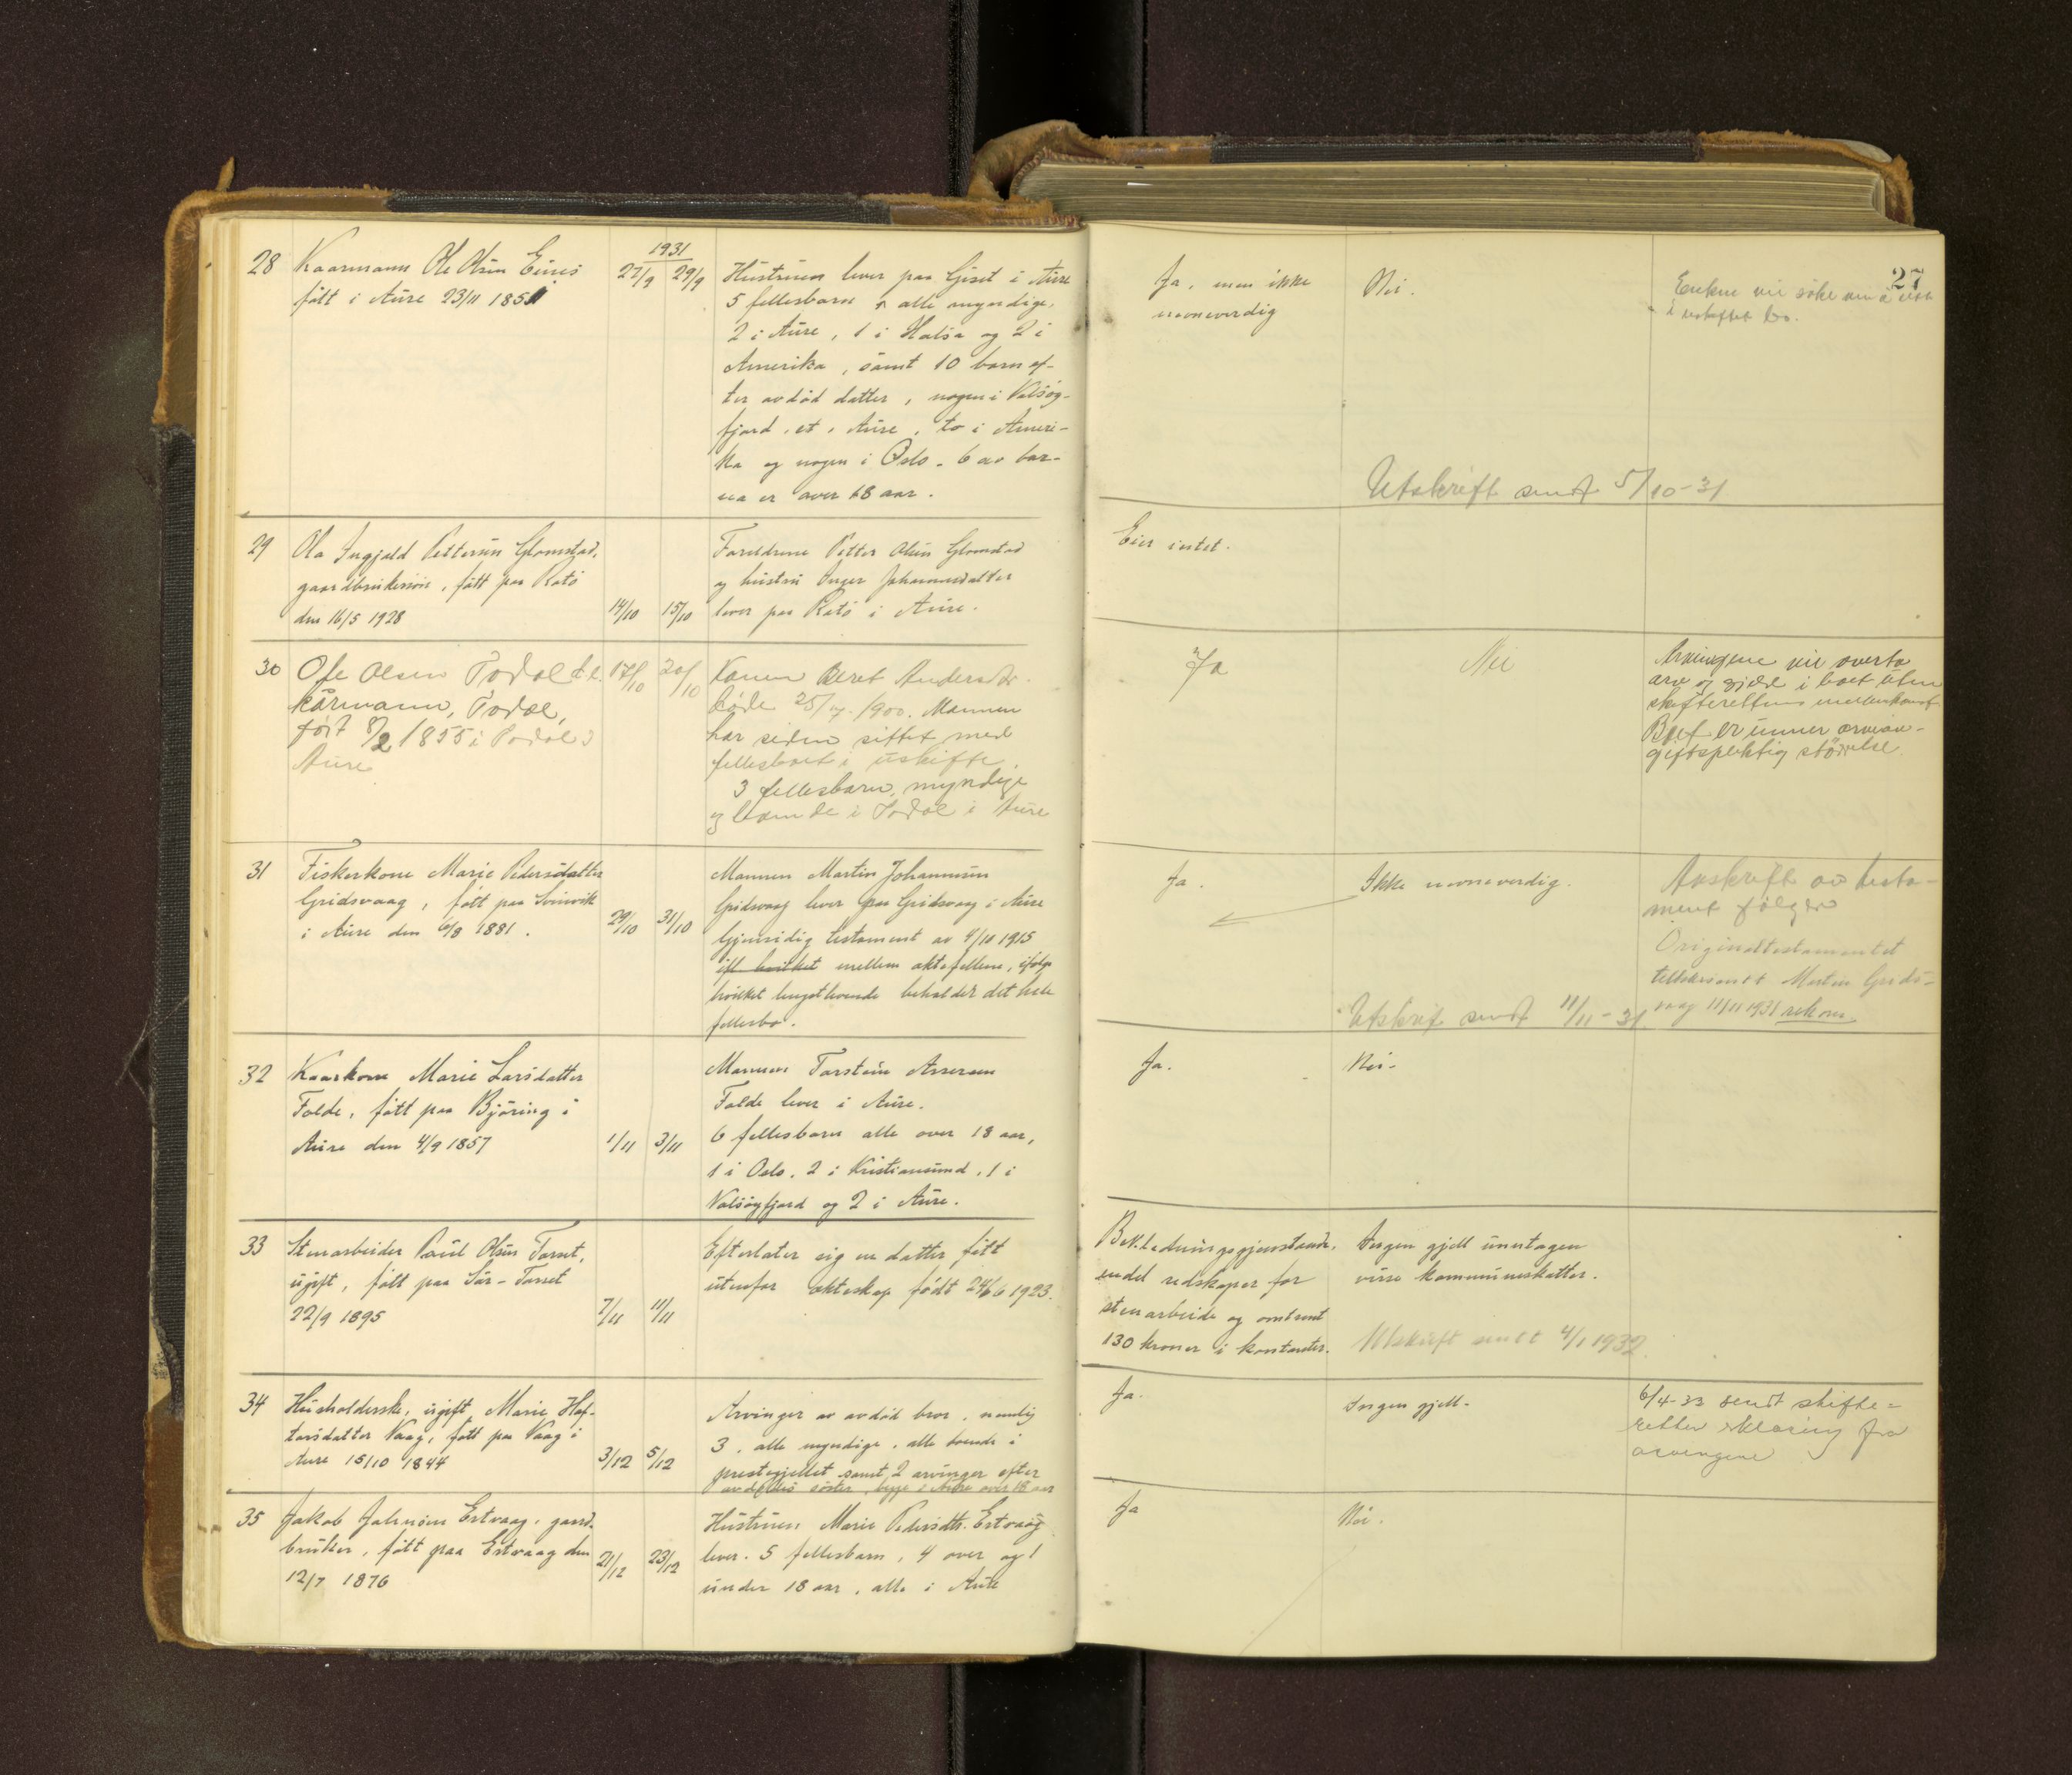 27
1931
28 Kaarmann Ole Olsen Eines 27/9 29/9
født i Aure 23/11 1851
Hustruen lever paa Gjset i Aure
5 fellesbarn, alle myndige,
2 i Aure, 1 i Halsa og 2 i
Amerika, samt 10 barn ef-
ter avdød datter, nogen i Valsøy-
fjord, et i Aure, to i Ameri-
ka og nogen i Oslo. 6 av bar-
na er over 18 aar.
Ja, men ikke
nevneverdig
Nei.
Enken vil søke om å sitte
i uskiftet bo.
Utskrift sendt 5/10-31
29 Ola Ingjald Pettersen Glomstad,
gaardbrukersøn, født paa Ratø
den 16/5 1928 14/10 15/10
Foreldrene Petter Olsen Glomstad
og hustru Inger Johannesdatter
lever paa Ratø i Aure.
Eier intet.
30 Ole Olsen Todal d.e. 17/10 20/10
kårmann, Todal,
født 8/2 1855 i Todal i
Aure
Konen Beret Andersdtr.
døde 25/7. 1900. Mannen
har siden sittet med
fellesboet i uskifte.
3 fellesbarn, myndige
og boende i Todal i Aure
Ja
Nei
Arvingene vil overta
arv og gjeld i boet uten
skifterettens mellemkomst
Boet er unner arveav-
giftspliktig størrelse.
31 Fiskerkone Marie Pedersdatter
Gridsvaag, født paa Svinvik
i Aure den 6/8 1881. 29/10 31/10
Mannen Martin Johannesen
Gridsvaag lever paa Gridsvaag i Aure
Gjensidig testament av 4/10 1915
ifl. hvilket mellem ektefellene, ifølge
hvilket lengstlevende beholder det hele
fellesbo.
Ja.
Ikke nevneverdig.
Avskrift av testa-
ment følger
Originaltestamentet
tilbakesendt Martin Grids-
vaag 11/11 1931 rekom.
Utskrift sendt 11/11-31
32 Kaarkone Marie Larsdatter
Folde, født paa Bjøring i
Aure den 4/9 1857 1/11 3/11
Mannen Torstein Assersen
Folde lever i Aure.
6 fellesbarn alle over 18 aar,
1 i Oslo, 2 i Kristiansund, 1 i
Valsøyfjord og 2 i Aure.
Ja.
Nei.
33 Stenarbeider Paul Olsen Torset,
ugift, født paa Sør-Torset
22/9 1895 7/11 11/11
Efterlater sig en datter født
utenfor ekteskap født 24/6 1923.
Bekledningsgjenstande,
endel redskaper for
stenarbeide og omtrent
130 kroner i kontanter.
Ingen gjeld unntagen
visse kommuneskatter.
Utskrift sendt 4/1 1932
34 Husholderske, ugift Marie Haf-
torsdatter Vaag, født paa Vaag i
Aure 15/10 1844 3/12 5/12
Arvinger av avdød bror, nemlig
3, alle myndige, alle boende i
prestegjellet samt 2 arvinger efter
avdødes søster, begge i Aure over 18 aar
Ja.
Ingen gjeld.
6/4-33 sendt skifte=
retten erklæring fra
arvingene
35 Jakob Johnsen Estvaag, gard-
bruker, født paa Estvaag den
12/7 1876 21/12 23/12
Hustruen Marie Pedersdtr. Estvaag
lever. 5 fellesbarn, 4 over og 1
under 18 aar, alle i Aure
Ja
Nei.